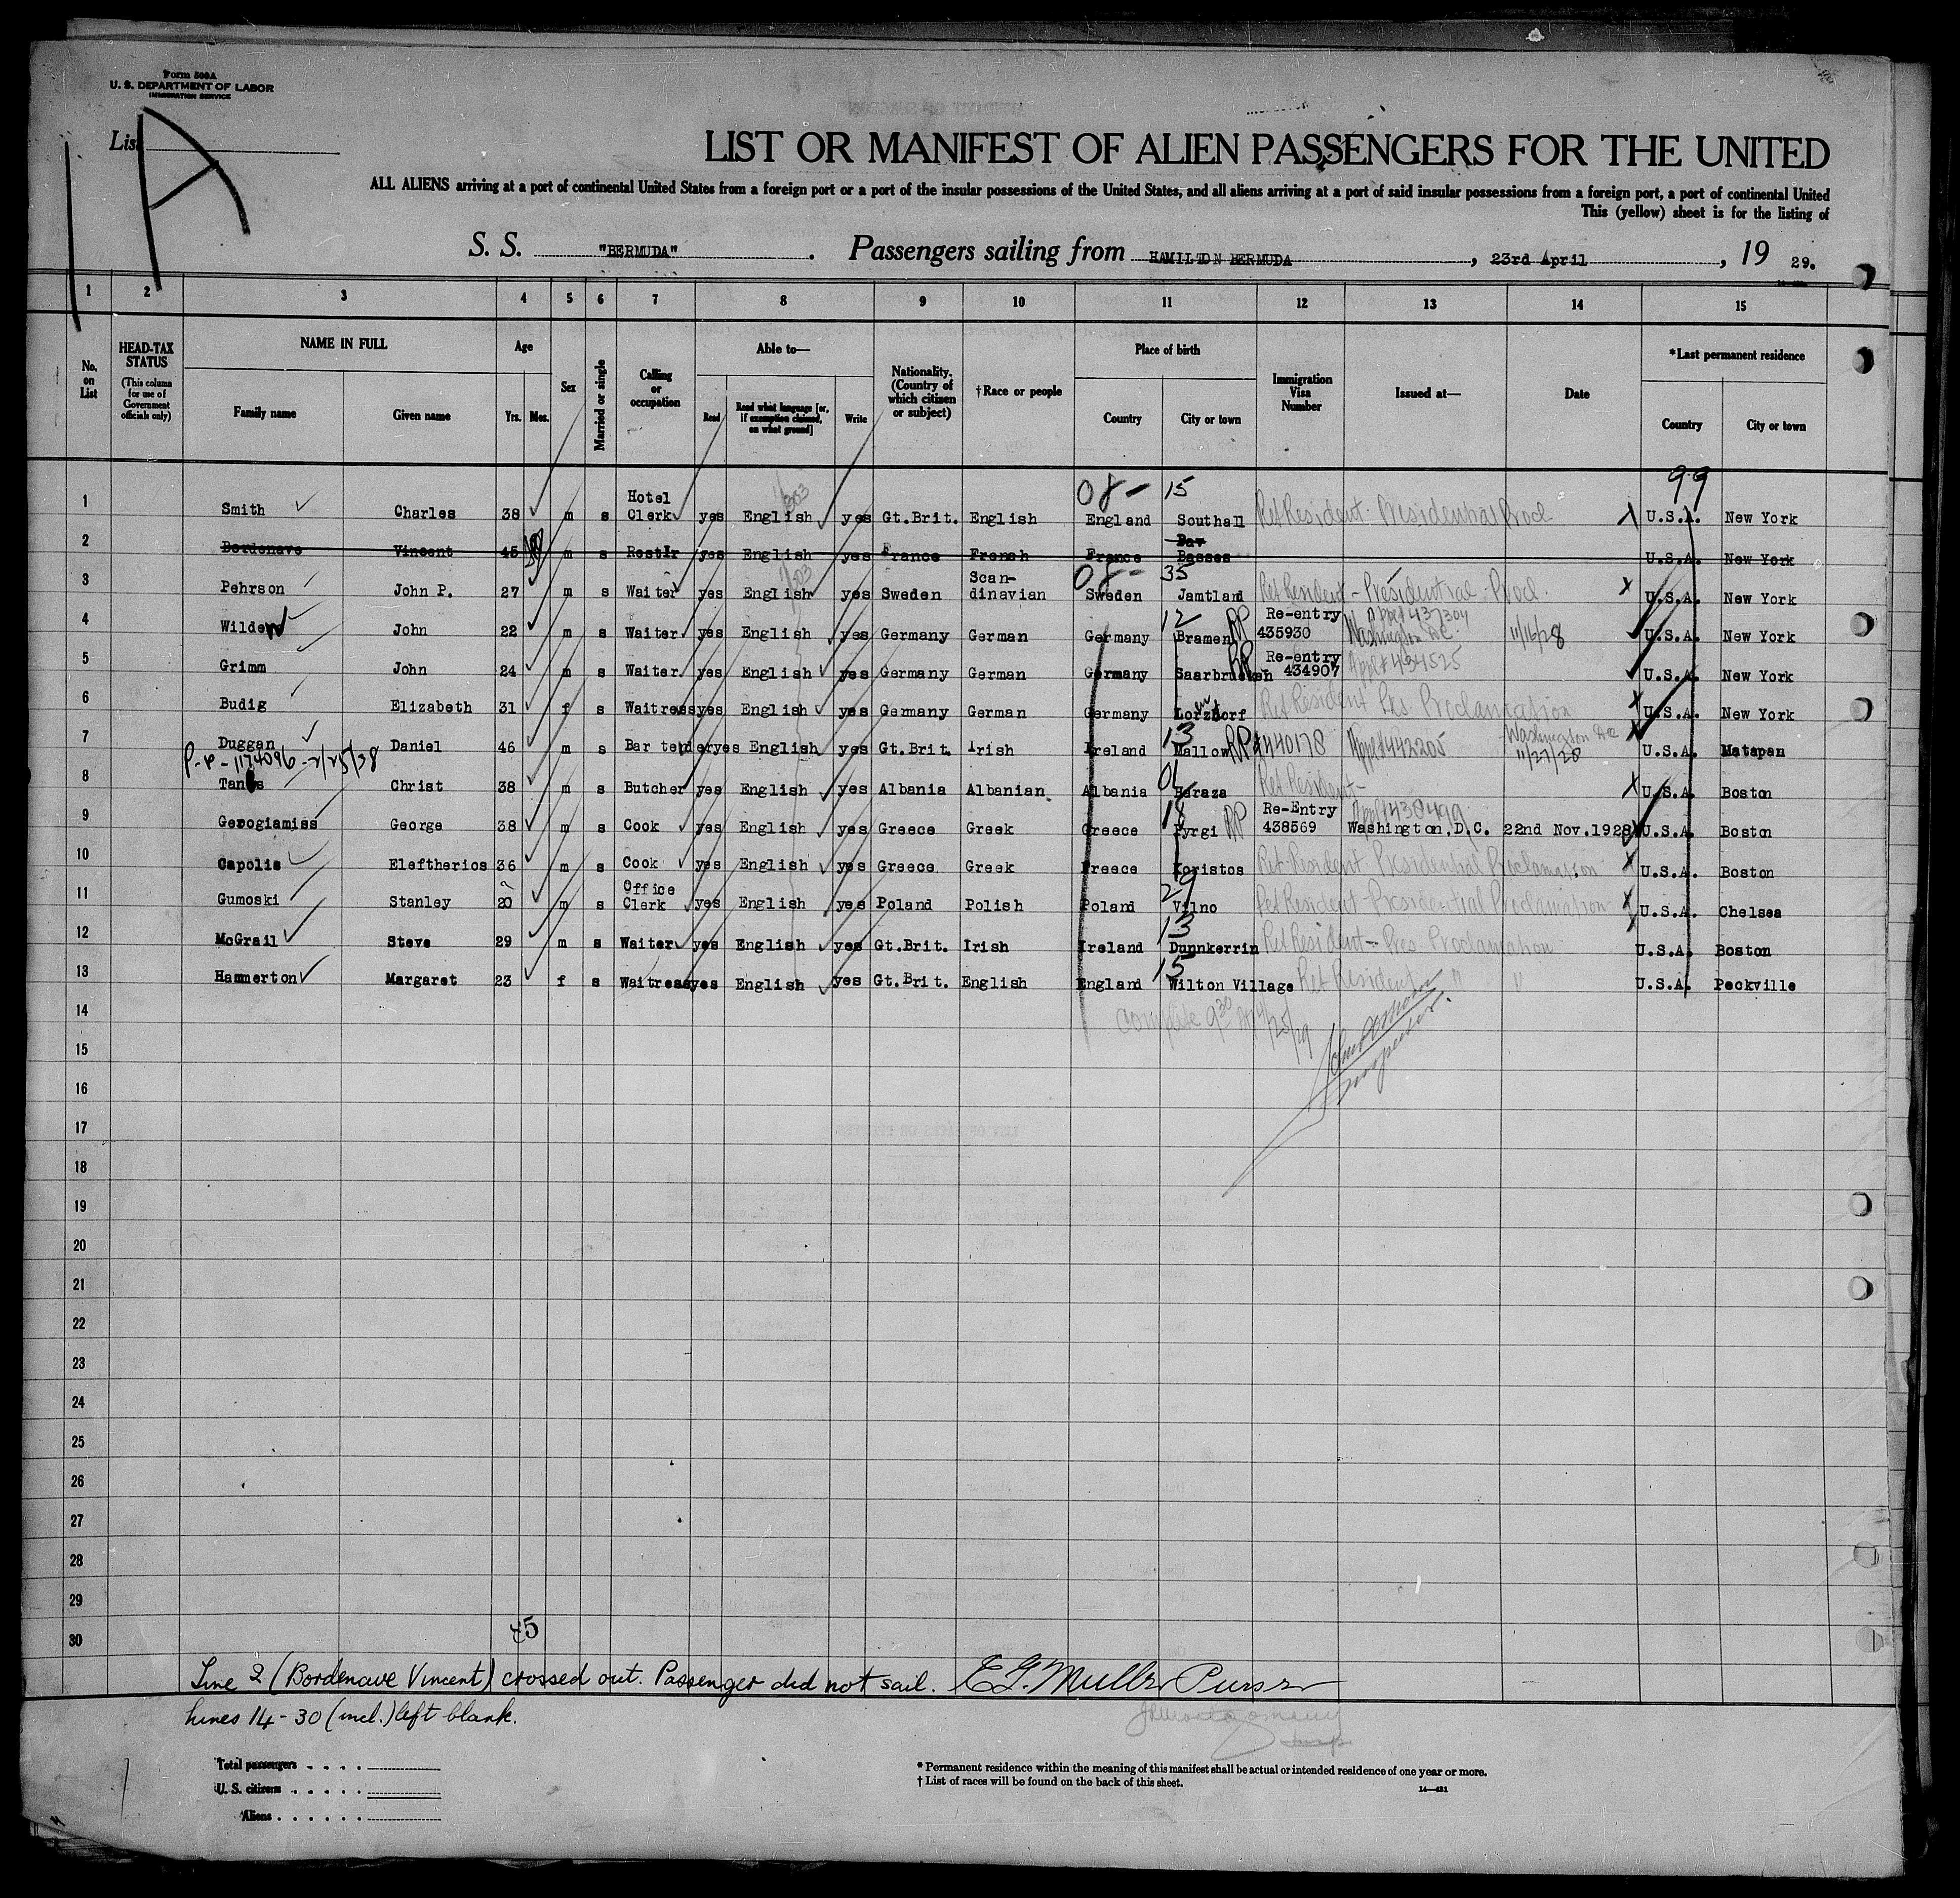 Form 500A
U. S. DEPARTMENT OF LABOR
IMMIGRATION SERVICE
List
A
LIST OR MANIFEST OF ALIEN PASSENGERS FOR THE UNITED
ALL ALIENS arriving at a port of continental United States from a foreign port or a port of the insular possessions of the United States, and all aliens arriving at a port of said insular possessions from a foreign port, a port of continental United
This (yellow) sheet is for the listing of
S. S. "BERMUDA". Passengers sailing from HAMILTON BERMUDA, 23rd April, 19 29.
1 2 3 4 5 6 7 8 9 10 11 12 13 14 15
No. on List
HEAD-TAX STATUS (This column for use of Government officials only)
NAME IN FULL
Family name Given name
Age
Yrs. Mos.
Sex
Married or single
Calling or occupation
Able to—
Read
Read what language [or, if exemption claimed, on what ground]
Write
Nationality. (Country of which citizen or subject)
†Race or people
Place of birth
Country City or town
Immigration Visa Number
Issued at—
Date
*Last permanent residence
Country City or town
08- 15 99
1 Smith Charles 38 m s Hotel Clerk yes English yes Gt.Brit. English England Southall Ret Resident - Presidential Procl. U.S.A. New York
2 Bordenave Vincent 45 m s Restlr yes English yes France French France Basses U.S.A. New York
08- 35
3 Pehrson John P. 27 m s Waiter yes English yes Sweden Scan-dinavian Sweden Jamtland Ret Resident - Presidential - Procl. U.S.A. New York
12
4 Wilden John 22 m s Waiter yes English yes Germany German Germany Bramen RP Re-entry 435930 Appl # 437304 Washington D.C. 11/16/28 U.S.A. New York
5 Grimm John 24 m s Waiter yes English yes Germany German Germany Saarbrucken RP Re-entry 434907 Appl # 434525 U.S.A. New York
6 Budig Elizabeth 31 f s Waitress yes English yes Germany German Germany Lorzdorf Ret Resident Pres Proclamation U.S.A. New York
13
7 Duggan Daniel 46 m s Bar tender yes English yes Gt.Brit. Irish Ireland Mallow RP #440178 Appl #442205 Washington DC 11/27/28 U.S.A. Matapan
P-P-1174096-2/25/38
01
8 Christ 38 m s Butcher yes English yes Albania Albanian Albania Haraza Ret Resident - U.S.A. Boston
18
9 Gerogiamiss George 38 m s Cook yes English yes Greece Greek Greece Pyrgi RP Re-Entry 438569 Washington,D.C. 22nd Nov.1928 U.S.A. Boston
10 Capolis Eleftherios 36 m s Cook yes English yes Greece Greek Freece Koristos Ret Resident - Presidential Proclamation U.S.A. Boston
29
11 Gumoski Stanley 20 m s Office Clerk yes English yes Poland Polish Poland Vilno Ret Resident - Presidential Proclamation U.S.A. Chelsea
13
12 McGrail Steve 29 m s Waiter yes English yes Gt.Brit. Irish Ireland Dunnkerrin Ret Resident - Pres. Proclamation U.S.A. Boston
15
13 Hammerton Margaret 23 f s Waitress yes English yes Gt.Brit. English England Wilton Village Ret Resident " " U.S.A. Peckville
14
Complete 9:30 4/25/29
Inspector.
15
16
17
18
19
20
21
22
23
24
25
26
27
28
29
30
45
Line 2 (Bordenave Vincent) crossed out. Passenger did not sail. E G. Muller Purser
Lines 14-30 (incl.) left blank.
Total passengers
U. S. citizens
Aliens
* Permanent residence within the meaning of this manifest shall be actual or intended residence of one year or more.
† List of races will be found on the back of this sheet.
14—431